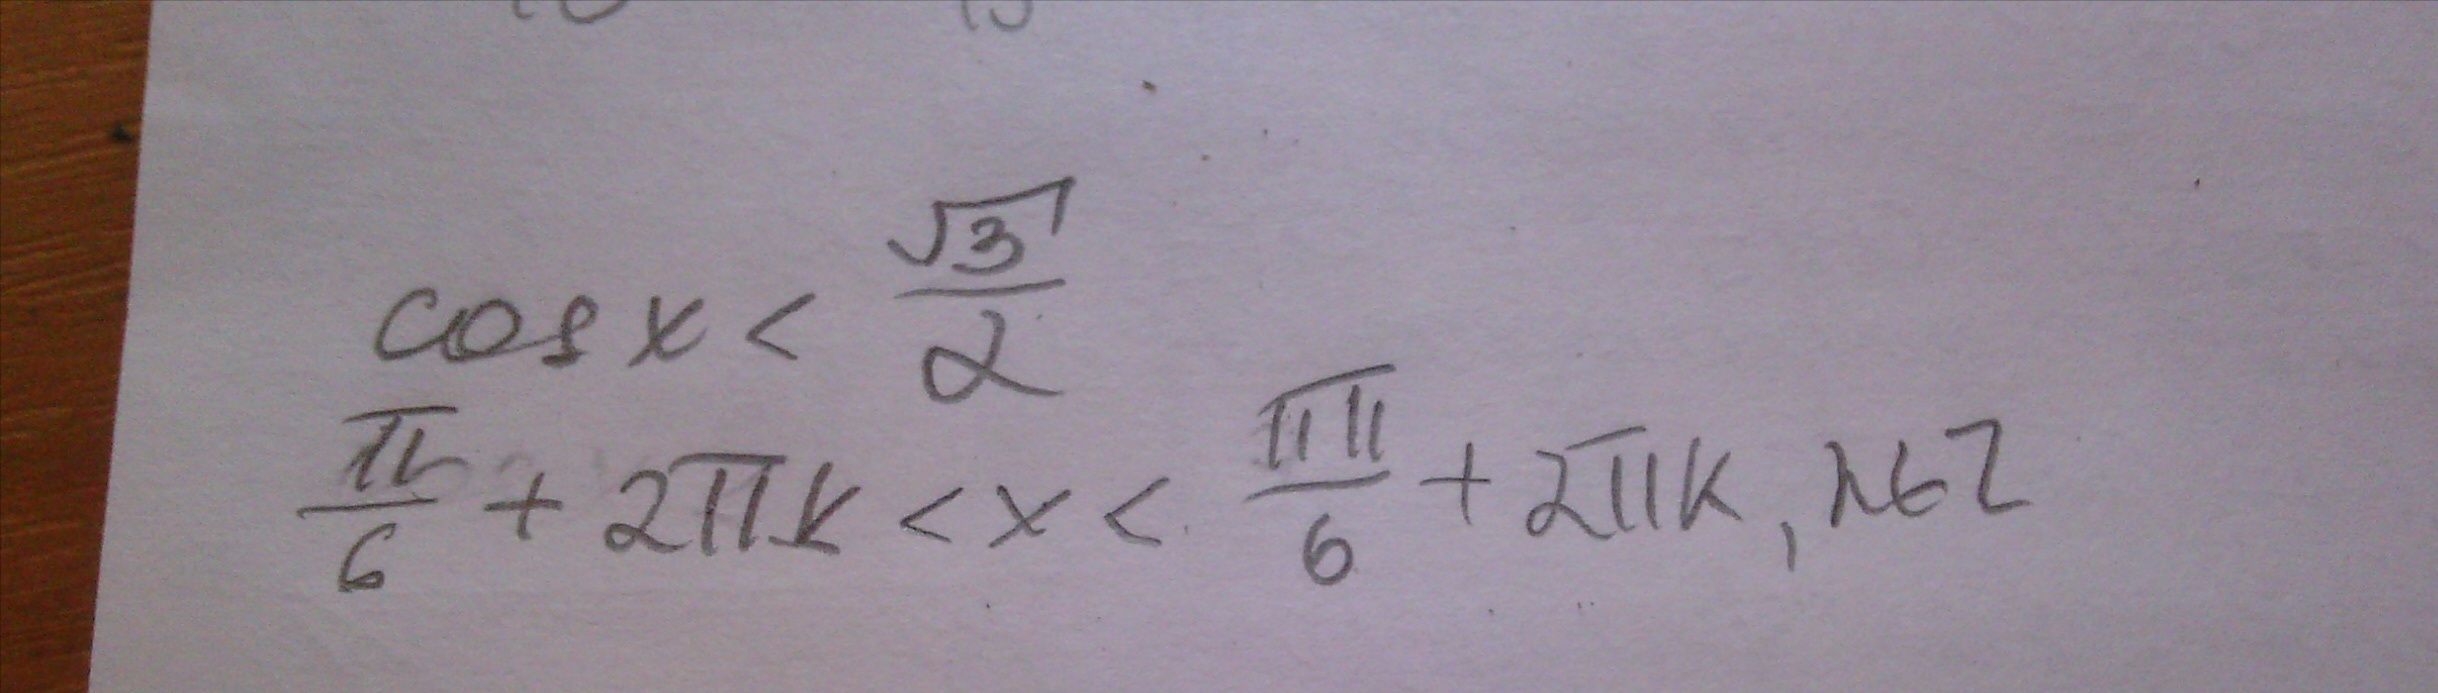 cos x < √3/2
π/6 + 2πk < x < 11π/6 + 2πk, n∈Z